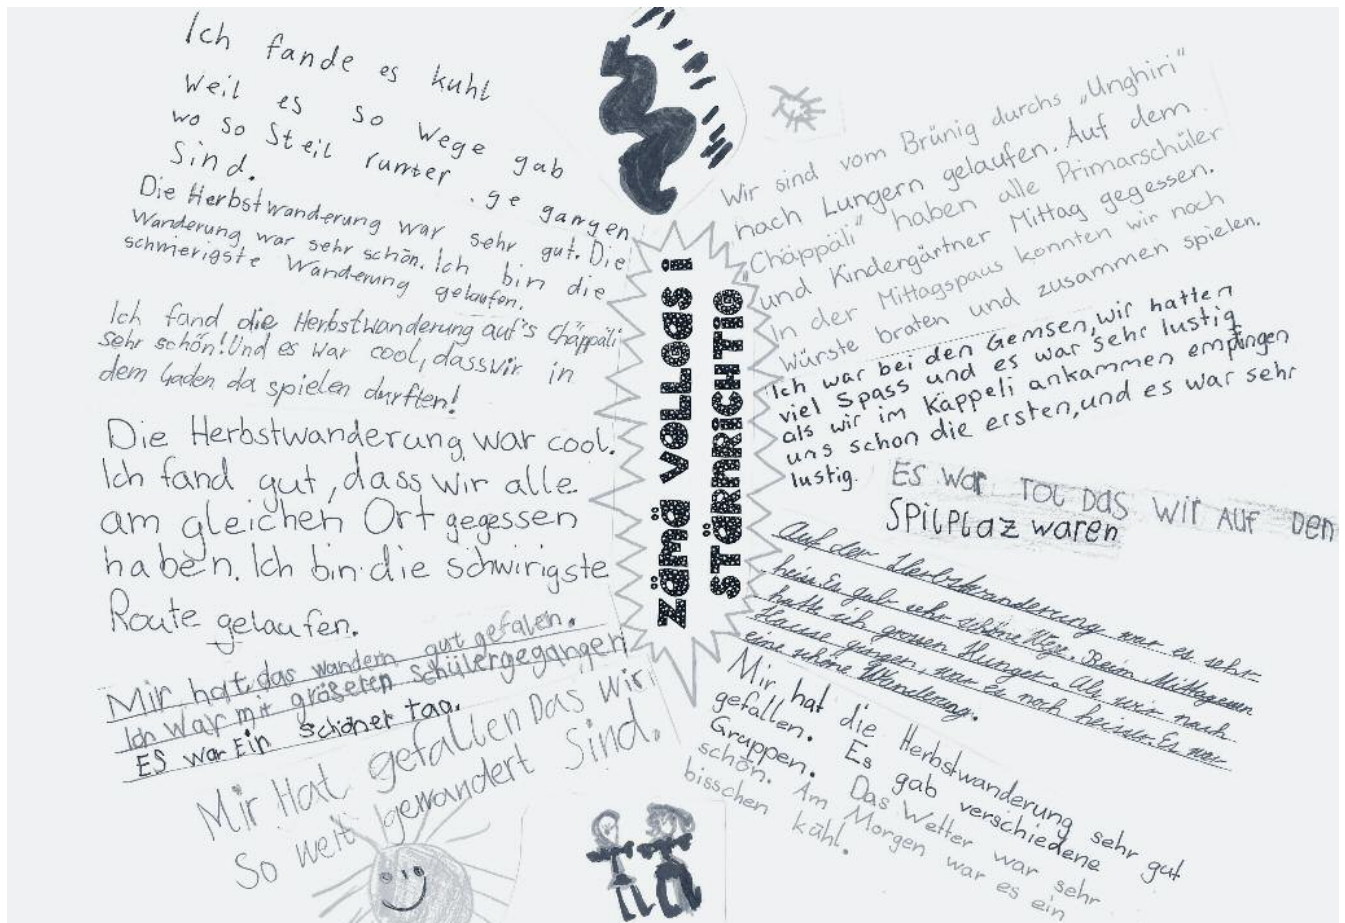 Ich fande es kuhl
Weil es so Wege gab
wo so Steil runter . ge gangen
Sind.
Die Herbstwanderung war sehr gut. Die
Wanderung war sehr schön. Ich bin die
schwierigste Wanderung gelaufen.
Ich fand die Herbstwanderung auf's Chäppäli
sehr schön! Und es war cool, dass wir in
dem Gaden da spielen durften!
Die Herbstwanderung war cool.
Ich fand gut, dass wir alle
am gleichen Ort gegessen
haben. Ich bin die schwirigste
Route gelaufen.
Mir hat das wandern gut gefalen.
Ich war mit gröseren schülergegangen
ES war Ein schöner tag.
Mir Hat gefallen Das wir
So weit gewandert Sind.
zämä vollgas i
stärnrichtig
Wir sind vom Brünig durchs „Unghiri"
nach Lungern gelaufen. Auf dem
"Chäppäli" haben alle Primarschüler
und Kindergärtner Mittag gegessen.
In der Mittagspaus konnten wir noch
Würste braten und zusammen spielen.
Ich war bei den Gemsen, wir hatten
viel Spass und es war sehr lustig
als wir im Käppeli ankammen empfingen
uns schon die ersten, und es war sehr
lustig.
ES war TOL DAS WIR AUF DEN
SPILPLAZ waren
Auf der Herbstwanderung war es sehr
heiss. Es gab sehr schöne Wege. Beim Mittagessen
hatte ich grossen Hunger. Als wir nach
Hause gingen, war es noch heisser. Es war
eine schöne Wanderung.
Mir hat die Herbstwanderung sehr gut
gefallen. Es gab verschiedene
Gruppen. Das Wetter war sehr
schön. Am Morgen war es ein
bisschen kühl.